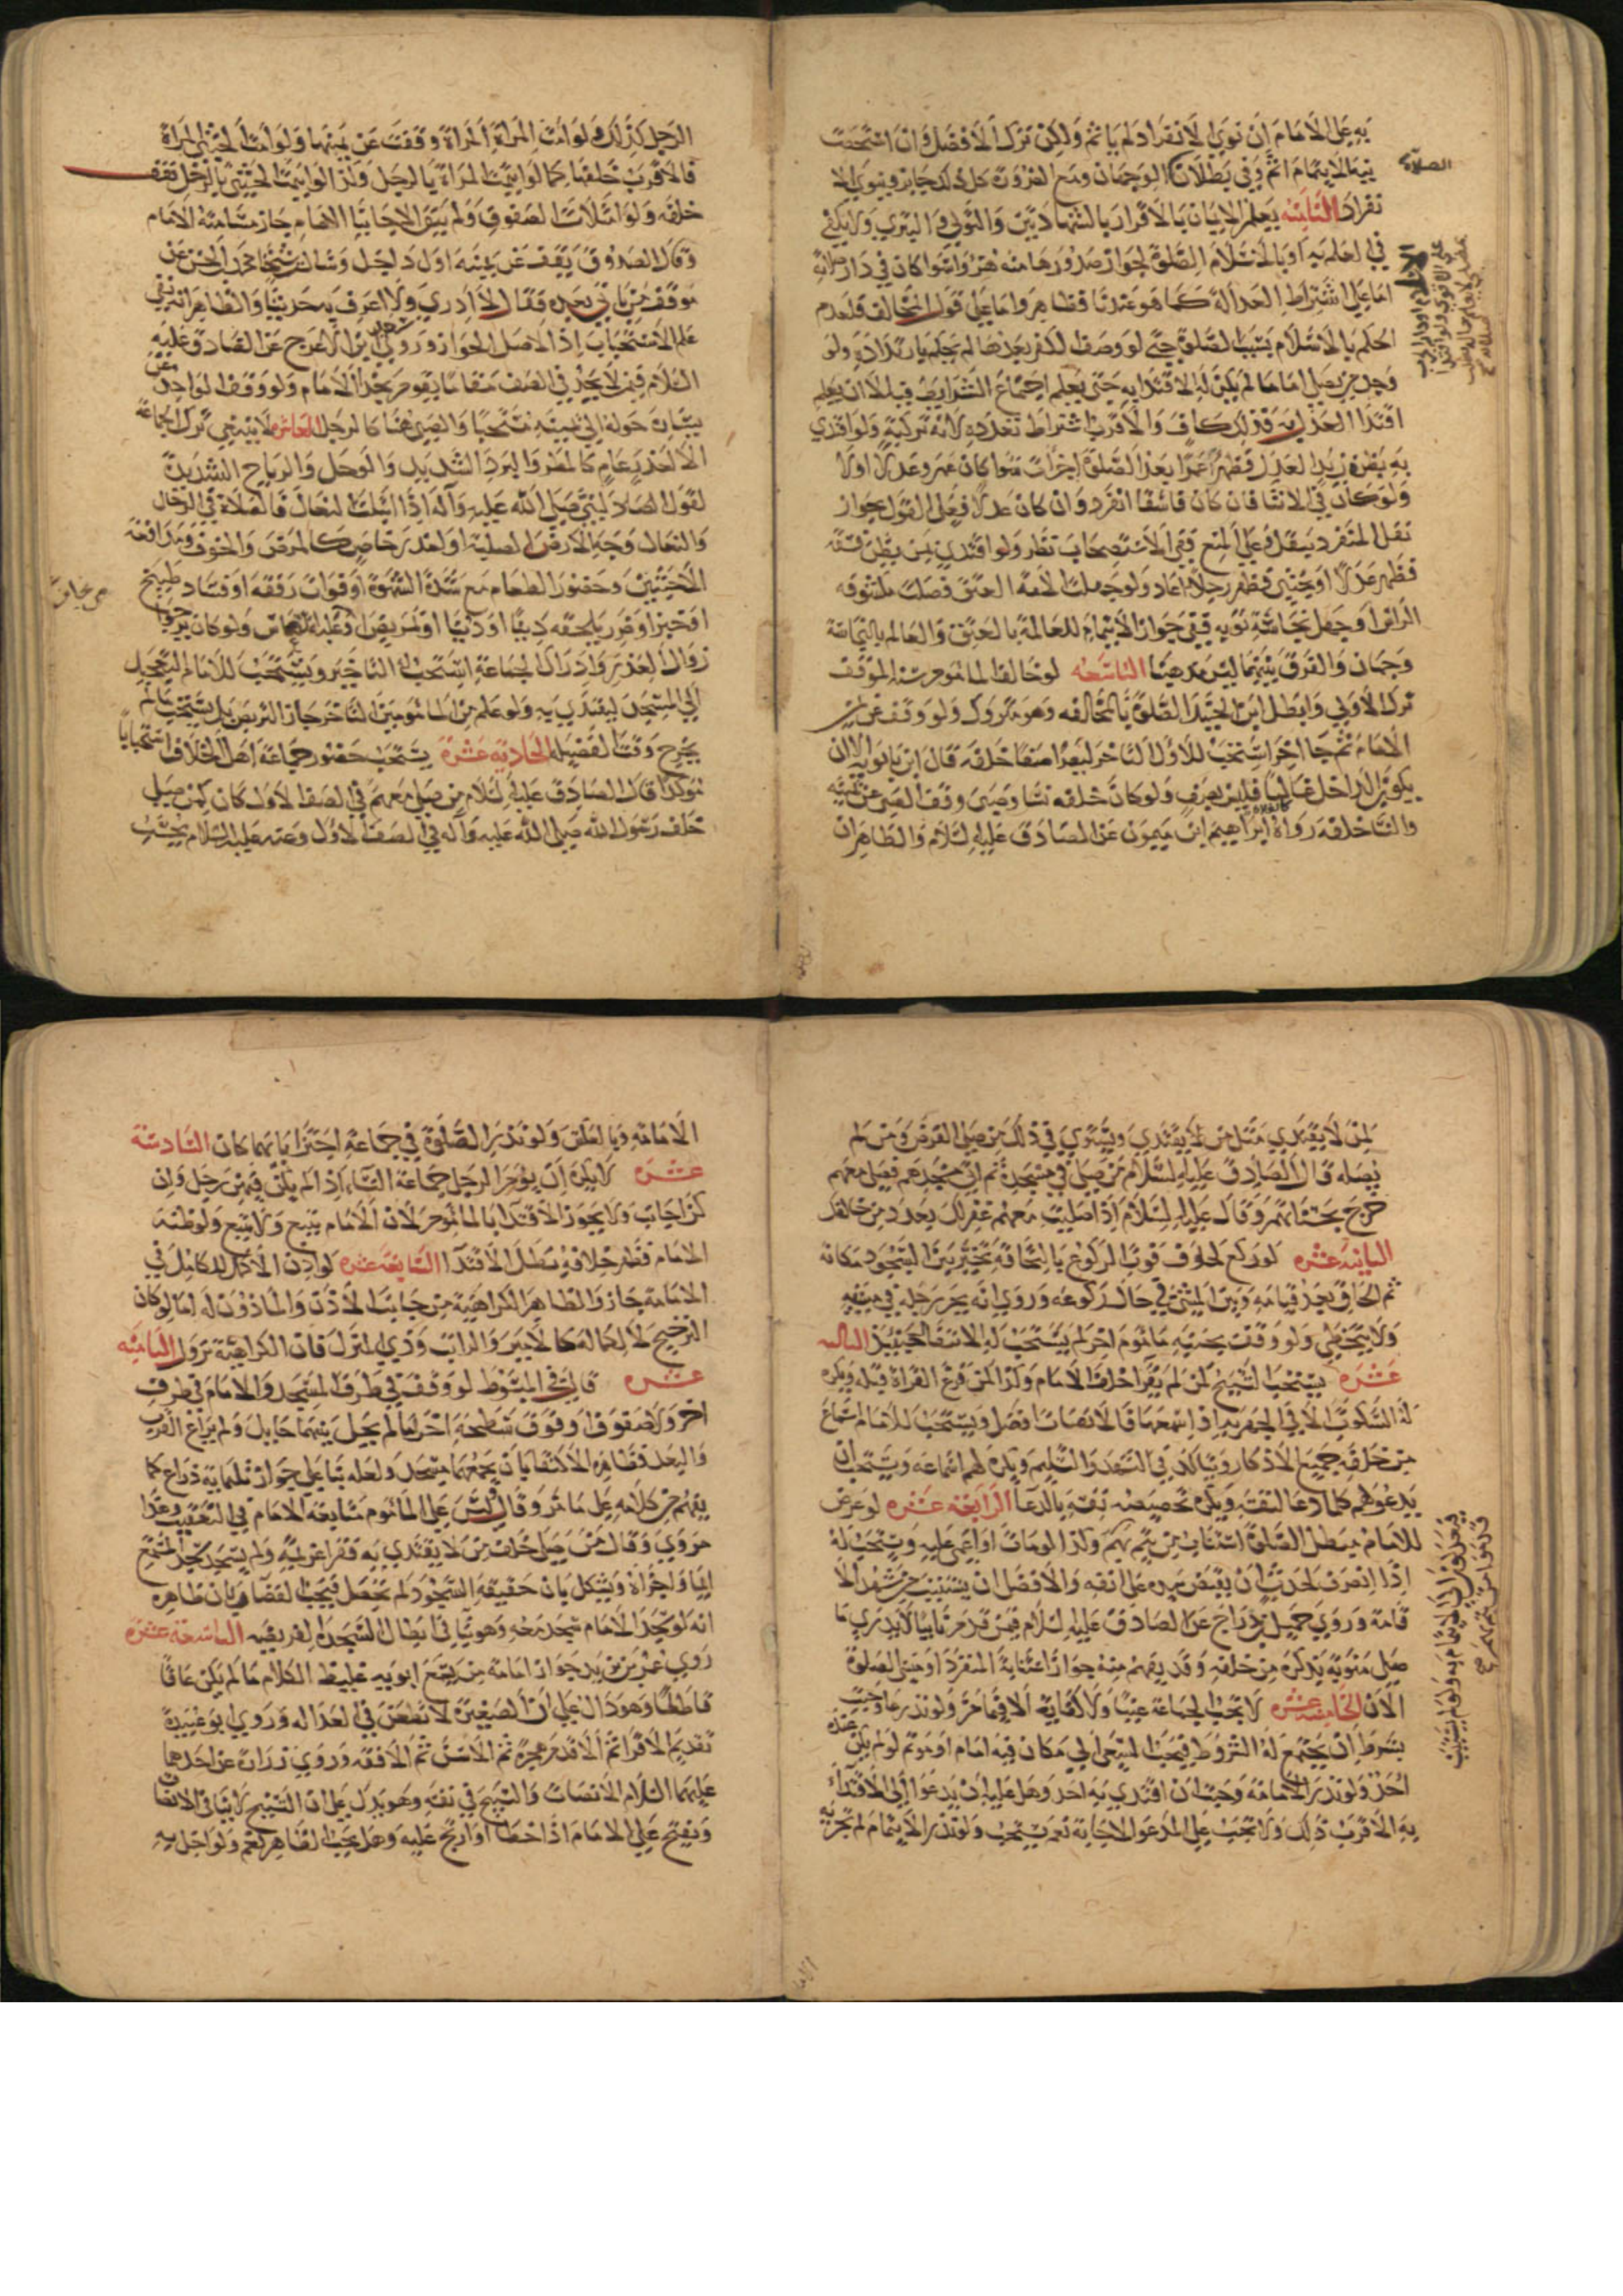 به على الامام ان نوى الانفراد لم ياثم ولكن ترك الافضل وان استصحبت
نية الايتمام اثم وفي بطلان الوجهان ومع الضرورة كل ذلك جايز وينوي الا
نفراد الثامنة يعلم الايمان بالاقرار بالشهادتين والتولي والتبري ولا يكفي
في العلم به او بالاسلام الصلوة لجواز صدورها منه هزوا سوا كان في دار
اما على اشتراط العدالة كما هو عندنا فظاهر واما على قول المخالف فلعدم
الحكم بالاسلام بسبب الصلوة حتى لو وصف الكفر بعدها لم يحكم بارتداده ولو
وجد من يصلي اماما لم يكن له الاقتدا به حتى يعلم اجتماع الشرايط قبل الا ان يعلم
اقتدا العدل به فذلك كاف والاقرب اشتراط تعدده لانه تزكية ولو اقتدى
به بظنه زيدا العدل فظهر عمرا بعد الصلوة اجزأت سوا كان عمرو عدلا او لا
ولو كان في الاثنا فان كان فاسقا انفرد وان كان عدلا فعلى القول بجواز
نقل المنفرد ينتقل وعلى المنع ففي الاستصحاب نظر ولو اقتدى بمن يظن فسقه
فظهر عدلا او بخنثى فظهر رجلا اعاد ولو جهلت الامة العتق فصلت مكشوفة
الراس او جهل نجاسة ثوبه ففي جواز الايتمام للعالمة بالعتق والعالم بالنجاسة
وجهان والفرق بينهما ليس مرضيا التاسعة لو خالف الماموم سنة الموقف
ترك الاولى وابطل ابن الجنيد الصلوة بالمخالفة وهو متروك ولو وقف عن يمين
الامام ثم جا اخر استحب للاول التاخر ليصيرا صفا خلفه قال ابن بابويه الا ان
يكون الداخل فليس يعرف ولو كان خلفه نسا وصبي وقف الصبي عن يمينه
والنسا خلفه رواه ابراهيم ابن ميمون عن الصادق عليه السلام والظاهر ان
الصلاة
الرجل كذلك ولو امت المراة المراة وقفت عن يمينها ولو امت الخنثى المراة
فالاقرب خلفها كما لو ايتمت المراة بالرجل وكذا لو ايتمت الخنثى بالرجل تقف
خلفه ولو امتلات الصفوف ولم يبق الا جانب الامام جاز مسامتة الامام
وقال الصدوق يقف عن يمينه اول داخل وسال شيخنا محمد بن الحسن عن
موقف من ياتي بعده فقال لا ادري ولا اعرف به حديثا والظاهر انه بنفي
علم الاستحباب اذ الاصل الجواز وروى سعيد ابن الاعرج عن الصادق عليه
السلام فيمن لا يجد في الصف مقاما يقوم بحذا الامام ولو وقف الواحد عن
يساره حوله الى يمينه مستحبا والصبي هنا كالرجل العاشرة لا ينبغي ترك الجماعة
الا لعذر عام كالمطر والبرد الشديد والوحل والرياح الشديدة
لقول الصادق النبي صلى الله عليه وآله اذا ابتلت النعال فالصلاة في الرحال
والنعال وجه الارض الصلبة او لعذر خاص كالمرض والخوف ومدافعة
الاخبثين وحضور الطعام مع شدة الشهوة او فوات رفقة او فساد طبيخ
او خبز او قدر يلحقه دينا او دنيا او تمريض او غلبة النعاس ولو كان يرجوا
زوال العذر وادراك الجماعة استحب التاخير ويستحب للامام التعجيل
الى المسجد ليقتدى به ولو علم من المامومين التاخر جاز التربص بل يستحب ما لم
يخرج وقت الفضيلة الحادية عشرة يستحب حضور جماعة اهل الخلاف استحبابا
موكدا قال الصادق عليه السلام من صلى معهم في الصف الاول كان كمن صلى
خلف رسول الله صلى الله عليه وآله في الصف الاول وعنه عليه السلام يحسب
لمن لا يقتدي مثل من يقتدي ويستوي في ذلك من صلى الفرض ومن لم
يصله قال الصادق عليه السلام من صلى في مسجده ثم اتى مسجدهم فصلى معهم
خرج بحسناتهم وقال عليه السلام اذا صليت معهم غفر لك بعدد من خالفك
الثانية عشرة لو ركع لخوف فوت الركوع بالتحاقه تخير بين السجود مكانه
ثم الحاق بعد قيامه وبين المشي في حال ركوعه وروي انه يجر رجله في مشيه
ولا يتخطى ولو وقف بجنبه ماموم اخر لم يستحب له الانتقال حينئذ الثالثة
عشرة يستحب التسبيح لمن لم يقرا خلف الامام وكذا لمن فرغ القراة قبله ويكره
له السكوت الا في الجهرية اذا سمعها فالانصات افضل ويستحب للامام اسماع
من خلفه جميع الاذكار ويتاكد في التشهد والتسليم ويكره لهم اسماعه ويستحب ان
يدعو لهم كما دعا لنفسه ويكره تخصيصه نفسه بالدعا الرابعة عشرة لو عرض
للامام مبطل الصلوة استناب من يتم بهم وكذا لو مات او اغمي عليه ويستحب له
اذا انصرف لحدث ان يقبض بيده على انفه والافضل ان يستنيب من شهد الا
قامة وروي جميل بن دراج عن الصادق عليه السلام فيمن قدم نايبا لا يدري ما
صلى منوبه يذكره من خلفه وقد يفهم منه جواز استنابة المنفرد او منشي الصلوة
الان الخامسة عشرة لا تجب الجماعة عينا ولا كفاية الا فيما مر ولو نذرها وجبت
بشرط ان يجتمع له الشروط فيجب السعي الى مكان فيه امام او موتم لو لم يكن عنده
احد ولو نذر الامامة وجبت ان اقتدى به احد وهل عليه ان يدعوا الى الاقتداء
به الاقرب ذلك ولا تجب على المدعو الاجابة نعم يستحب ولو نذر الايتمام لم تجزيه
الامامة وبالعكس ولو نذر الصلوة في جماعة اجتزا بايهما كان السادسة
عشرة لا يكره ان يؤم الرجل جماعة النساء اذا لم يكن فيهن رجل وان
كن اجانب ولا يجوز الاقتدا بالماموم لان الامام متبع ولا يتبع ولو ظنه
الامام فظهر خلافه بطل الاقتدا السابعة عشرة لو اذن الاكمل للكامل في
الامامة جاز والظاهر الكراهية من جانب الاذن والماذون له اما لو كان
الترجيح لا لكماله كالامير والراتب وذي المنزل فان الكراهية تزول الثامنة
عشرة قال الشيخ في المبسوط لو وقف في طرف المسجد والامام في طرف
اخر ولا صفوف او فوق سطحه اخر ما لم يحل بينهما حايل ولم يراع القرب
والبعد فظاهره الاكتفا بان يجمعهما مسجد ولعله بنا على جواز ثلثماية ذراع كما
يفهم من كلامه على ما مر وقال ليس على الماموم متابعة الامام في التعقيب وهذا
مروي وقال من صلى خلف من لا يقتدي به فقرا عزيمة ولم يسجد سجد المستمع
ايما واجزاه ويشكل بان حقيقة السجود لم تحصل فيجب القضا وبان ظاهره
انه لو سجد الامام سجد معه وهو بنا في ابطال السجدة الفريضة التاسعة عشرة
روى عمر بن يزيد جواز امامة من يسمع ابويه غليظ الكلام ما لم يكن عاقا
قاطعا وهو دال على ان الصغيرة لا تطعن في العدالة وروى ابو عبيدة
تقديم الاقرا ثم الاقدم هجرة ثم الاسن ثم الافقه وروى زرارة عن احدهما
عليهما السلام الانصات والتسبيح في نفسه وهو يدل على ان التسبيح لا ينافي الانصات
ويفتح على الامام اذا اخطا او ارتج عليه وهل يجب الظاهر نعم ولو اخل به